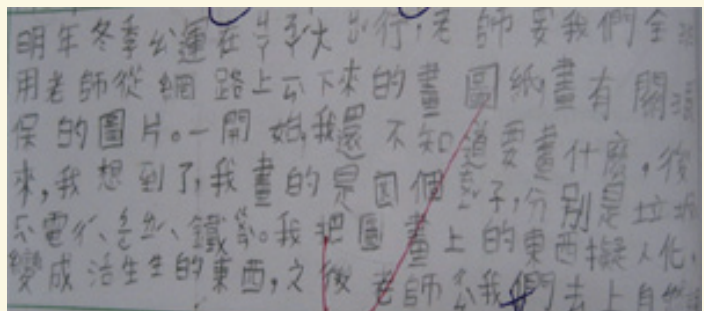 明年冬季公運在 大 行,老師要我們全
用老師從網路上 下來的畫圖紙畫有關
保的圖片。一開始,我還不知道要畫什麼,後
來,我想到了,我畫的是四個 子,分別是垃圾
電 、 、鐵 。我把圖畫上的東西擬人化,
變成活生生的東西,之後老師 我們去上自然